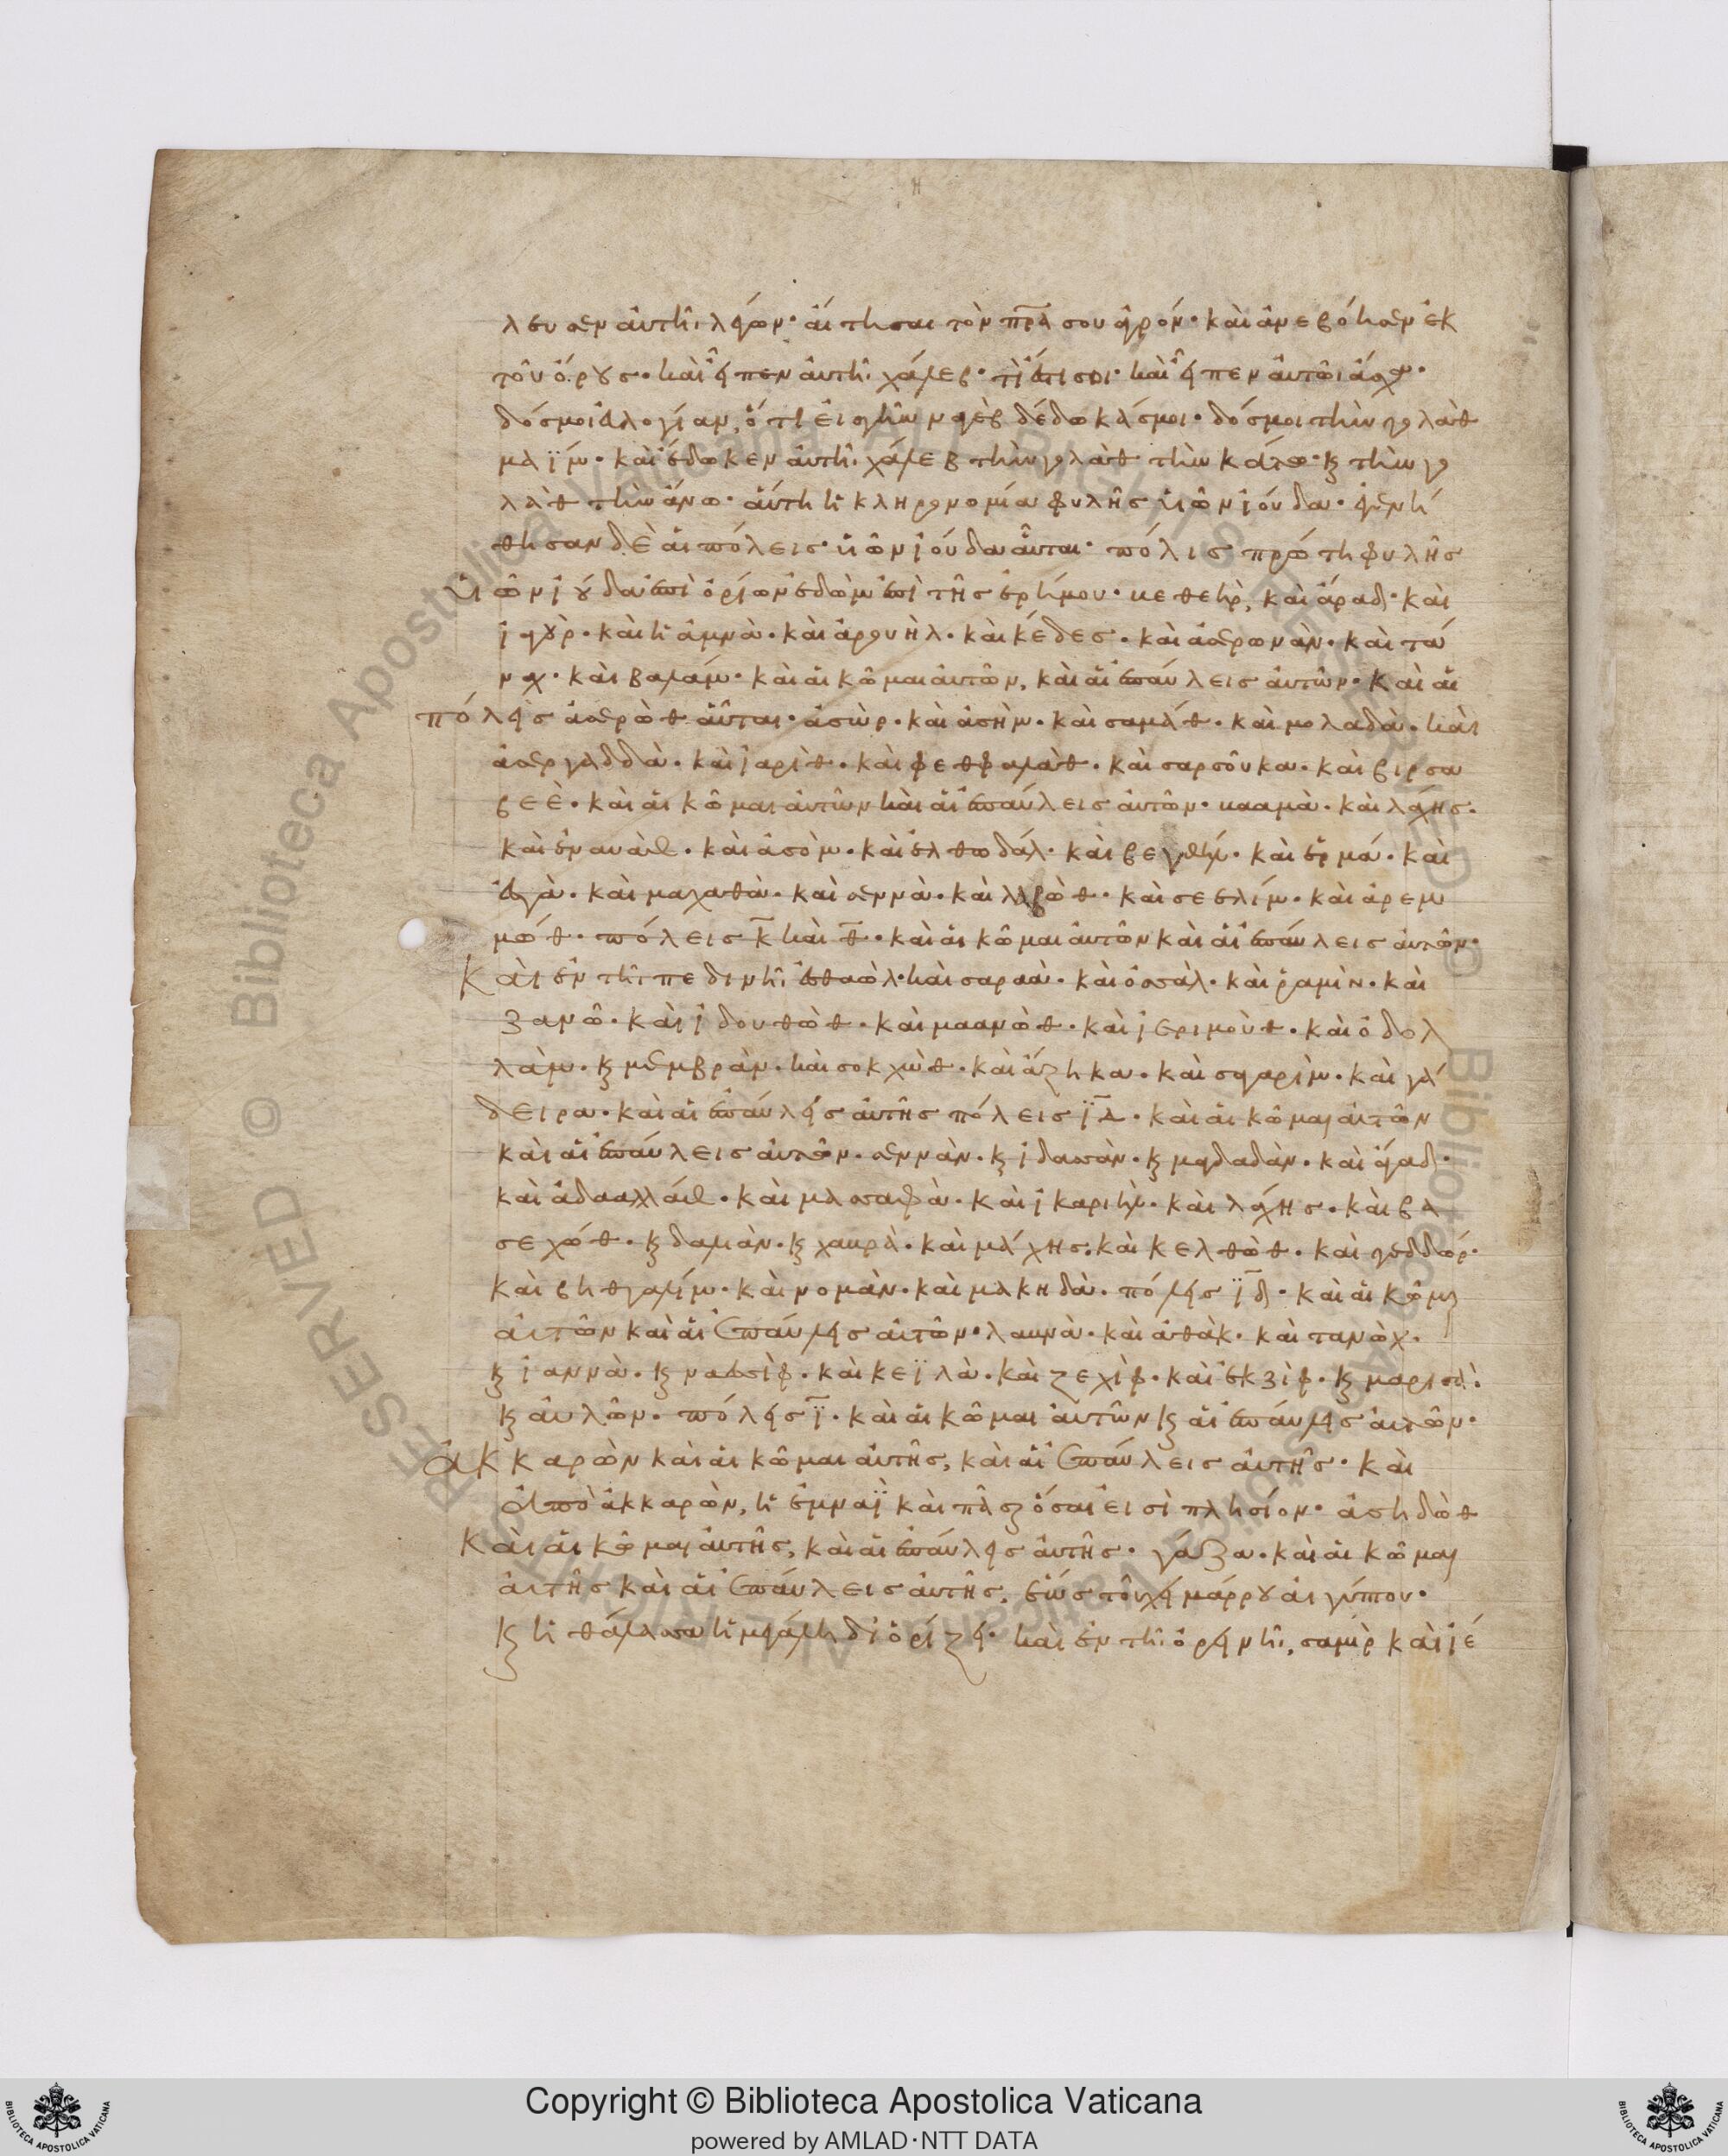 λευσεν αὐτῆι λέγων· αἴτησαι τὸν πρ̅α σου ἀγρόν· καὶ ἀνεβόησεν ἐκ
τοῦ ὄνου· καὶ εἶπεν αὐτῆι χάλεβ· τί ἐστί σοι· καὶ εἶπεν αὐτῶι
δός μοι εὐλογίαν, ὅτι εἰς γῆν ναγὲβ δέδωκάς μοι· δός μοι τὴν γολὰθ
μαΐμ· καὶ ἔδωκεν αὐτῆι χάλεβ τὴν γολὰθ τὴν κάτω· κ τὴν γο
λὰθ τὴν ἄνω· αὕτη ἡ κληρονομία φυλῆς υἱῶν ἰούδα· ἐγενή
θησαν δὲ αἱ πόλεις υἱῶν ἰούδα αὗται· πόλις πρώτη φυλῆς
υἱῶν ἰούδα ἐπὶ ὁρίων ἐδὼμ ἐπὶ τῆς ἐρήμου· καὶ ἄραδ· καὶ
ἰαγοὺρ· καὶ κέδες· καὶ
καὶ αἱ κῶμαι αὐτῶν, καὶ αἱ ἐπαύλεις αὐτῶν· καὶ αἱ
πόλεις ἀσερὼθ αὗται· ἀσὼρ· καὶ καὶ σαμάθ· καὶ μολαδὰ· καὶ
ἀσεργαδδὰ· καὶ ἰαρὶθ· καὶ καὶ σαρσοῦλα· καὶ βιρσα
βεὲ· καὶ αἱ κῶμαι αὐτῶν καὶ αἱ ἐπαύλεις αὐτῶν· βααλὰ· καὶ
καὶ καὶ ἀσὸμ· καὶ ἐλθωδάδ· καὶ βεθὴλ· καὶ ἑρμά· καὶ
καὶ μαχαθὰ· καὶ σενναὰ· καὶ λαβὼθ· καὶ σελεὶμ· καὶ ἀρεμ
μώθ· πόλεις κ̅ καὶ θ̅· καὶ αἱ κῶμαι αὐτῶν καὶ αἱ ἐπαύλεις αὐτῶν·
Καὶ ἐν τῆι πεδινῆι ἐσθαὸλ· καὶ σαραὰ· καὶ καὶ ῥαμὶν· καὶ
ζανῶ· καὶ ἰδουθὼθ· καὶ μαανὼθ· καὶ ἰεριμοὺθ· καὶ ὀδολ
λὰμ· κ μεμβρὰν· καὶ σοκχὼθ· καὶ ἀζηκα· καὶ σαγαρὶμ· καὶ γά
δειρα· καὶ αἱ ἐπαύλεις αὐτῆς πόλεις ιδ̅· καὶ αἱ κῶμαι αὐτῶν
καὶ αἱ ἐπαύλεις αὐτῶν· σεννὰν· κ ἰδασὰν· κ μαγδαδὰν· καὶ
καὶ ἀδααλλὰλ· καὶ μασσηφὰ· καὶ ἰκαριὴλ· καὶ λάχης· καὶ βα
σεχώθ· κ καὶ μάχης· καὶ κελθὼθ· καὶ γεδδώρ·
καὶ βηθγαλίμ· καὶ νομὰν· καὶ μακηδὰ· πόλεις ιδ· καὶ αἱ κῶμαι
αὐτῶν καὶ αἱ ἐπαύλεις αὐτῶν· λαβνὰ· καὶ ἀθὰκ· καὶ
κ ἰαννὰ· κ νασσὶφ· καὶ κεϊλὰ· καὶ ζεχὶφ· καὶ ἐκζὶφ· κ μαρισὰ·
κ αὐλῶν· πόλεις ι̅· καὶ αἱ κῶμαι αὐτῶν κ αἱ ἐπαύλεις αὐτῶν·
Ἀκκαρὼν καὶ αἱ κῶμαι αὐτῆς, καὶ αἱ ἐπαύλεις αὐτῆς· καὶ
ἀπὸ ἀκκαρὼν, ἡ ἐμναῒ καὶ πᾶσαι ὅσαι εἰσὶ πλησίον· ἀσηδὼθ
Καὶ αἱ κῶμαι αὐτῆς, καὶ αἱ ἐπαύλεις αὐτῆς· γάζα· καὶ αἱ κῶμαι
αὐτῆς καὶ αἱ ἐπαύλεις αὐτῆς, ἕως τοῦ χειμάρρου αἰγύπτου·
κ ἡ θάλασσα ἡ μεγάλη διορίζει· καὶ ἐν τῆι ὀρεινῆι, σαμὶρ καὶ ἰέ
Copyright © Biblioteca Apostolica Vaticana
powered by AMLAD·NTT DATA